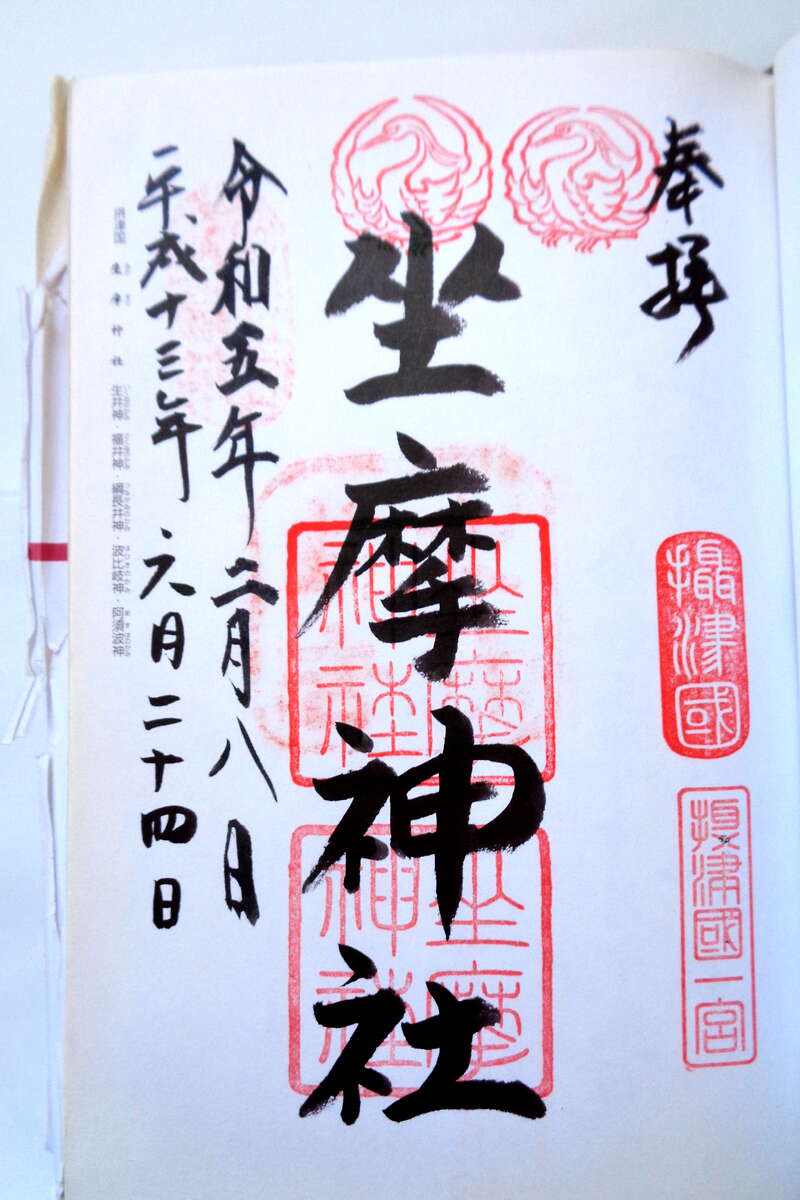 奉拝
攝津國
攝津國一宮
坐摩神社
坐摩神社
坐摩神社
令和五年二月八日
平成十三年六月二十四日
摂津国 坐摩神社 生井神・福井神・綱長井神・波比岐神・阿須波神